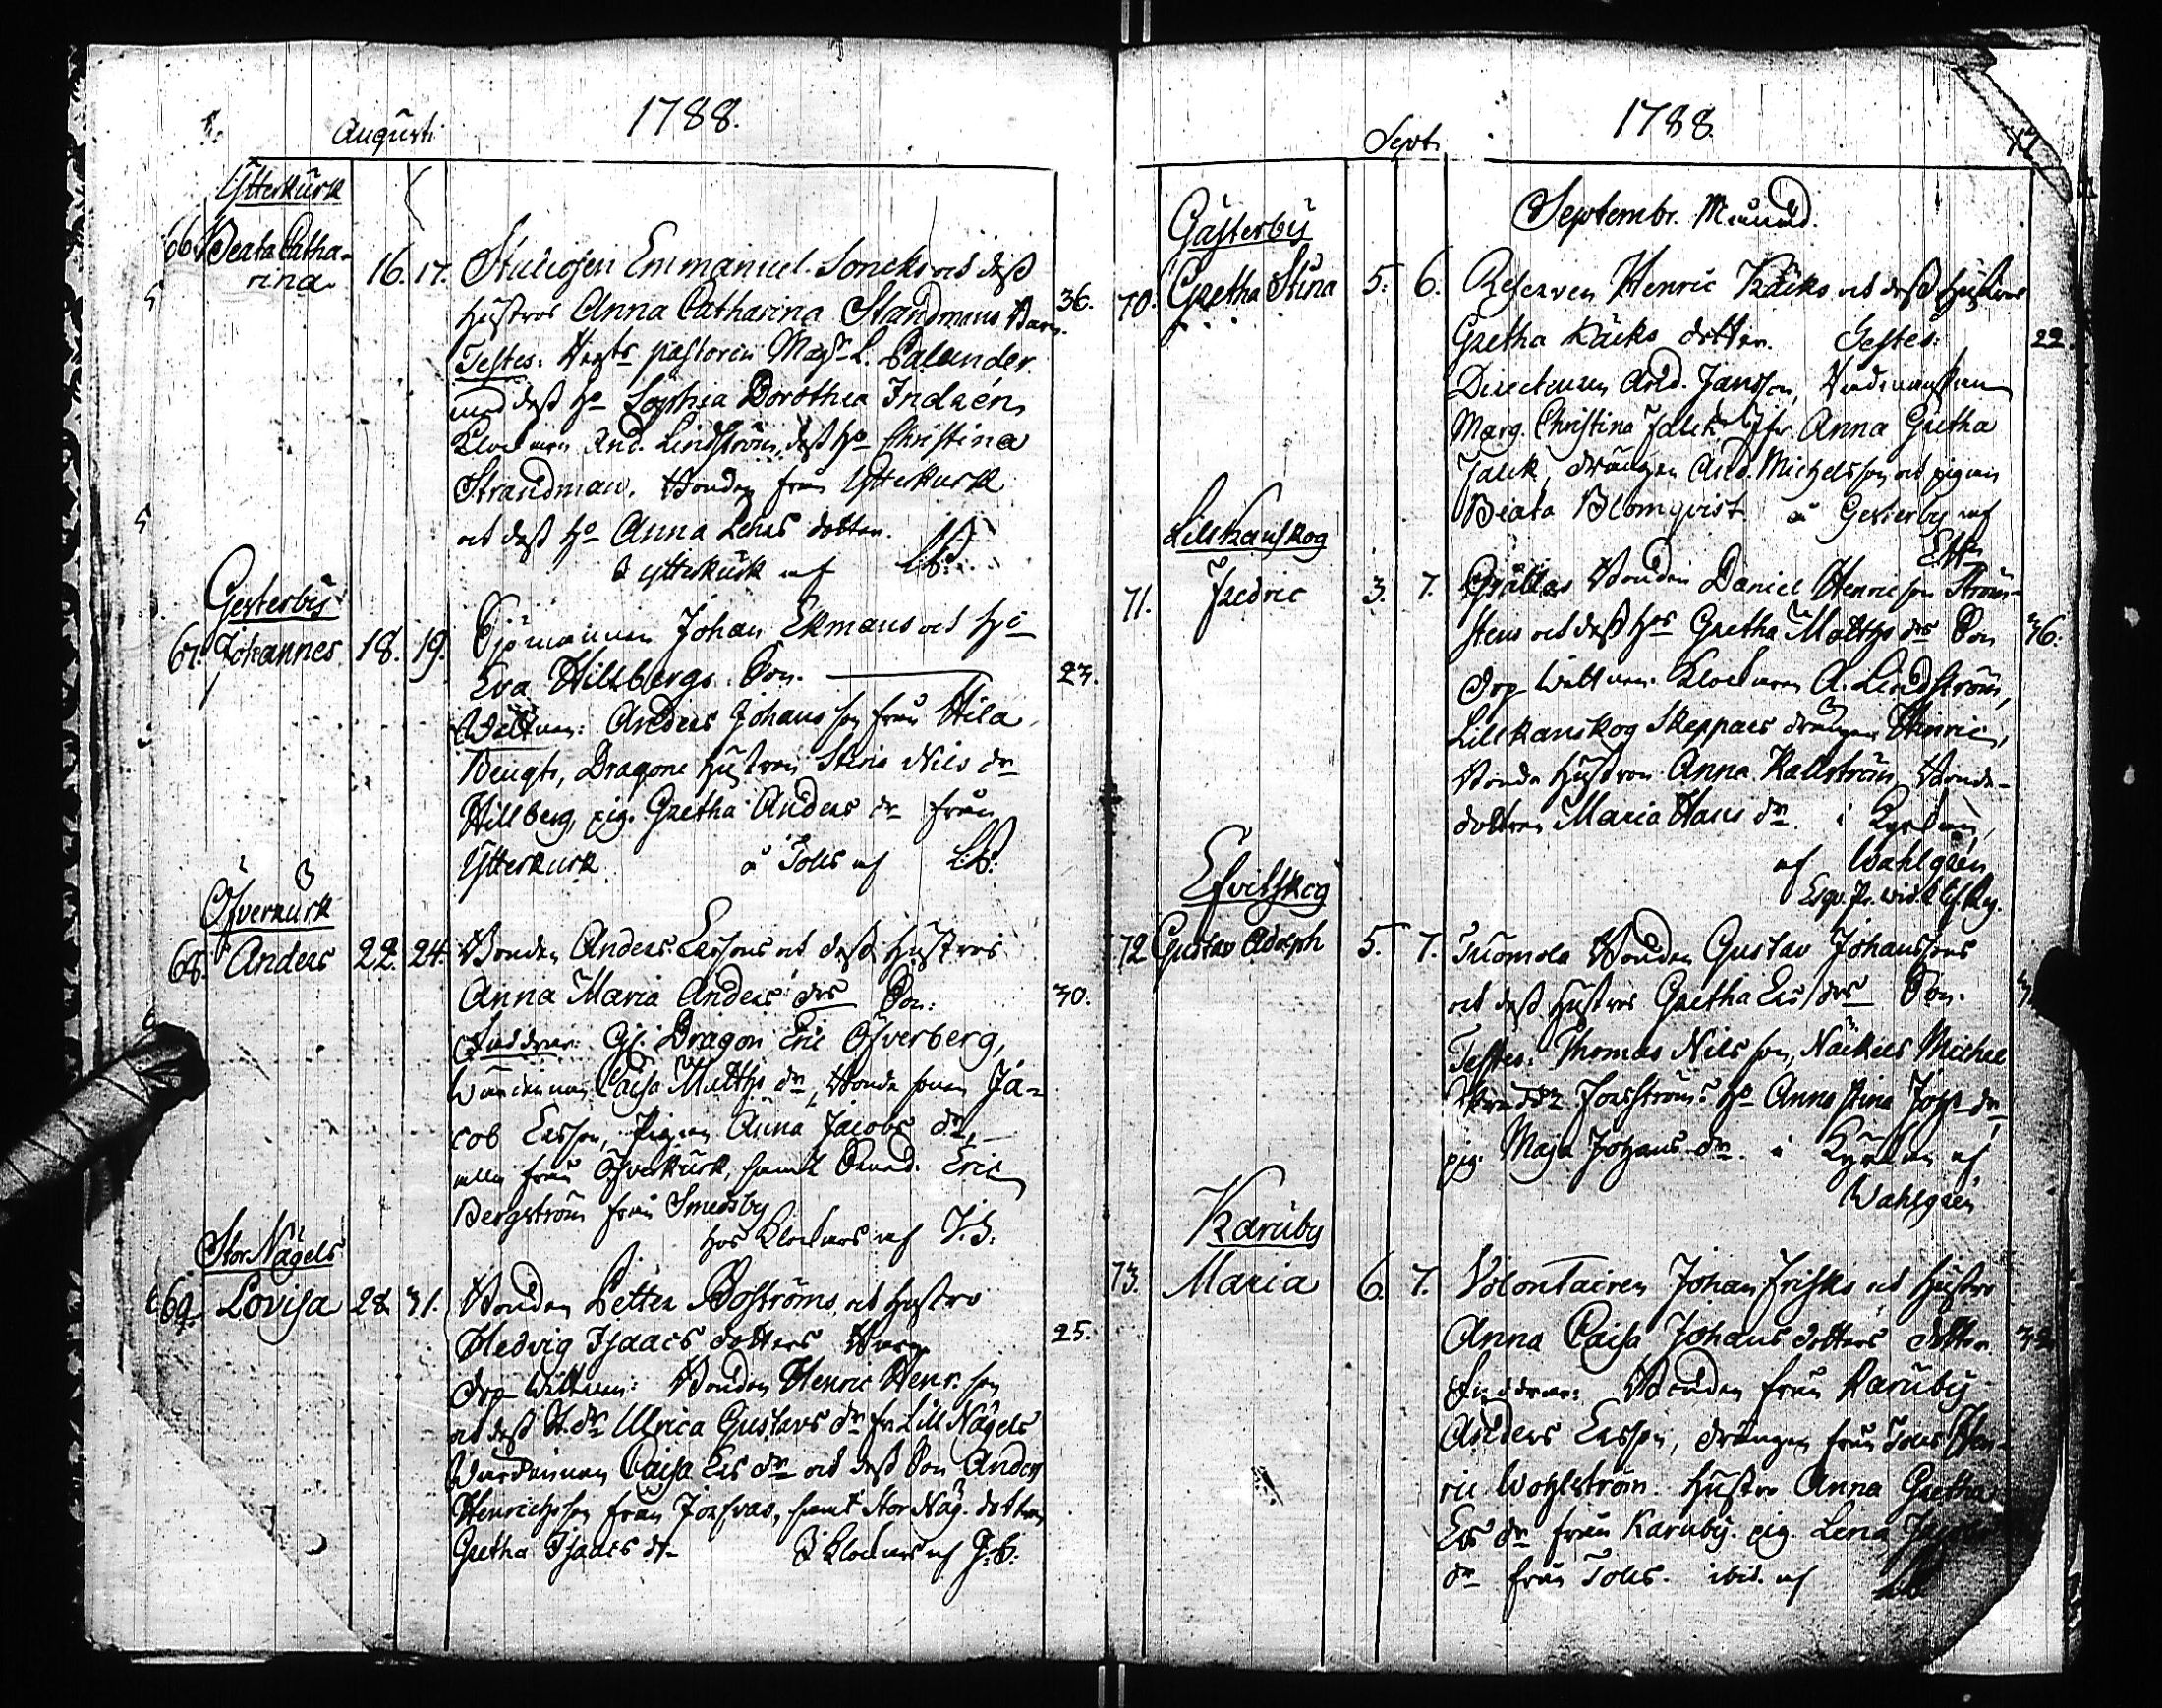 1788.
Augusti
Ytterkurk
66. Beata Catha-
rina. 16. 17. Studiosen Emmanuel Soncks och dess
hustrus Anna Catharina Standmans Barn. 36.
Testes: pastorin Mag. L. Palander
med dess ho Sophia Dorothea Indrén,
Klockaren And. Lindström, dess ho Christina
Strandman. Bonden från Ytterkurk
och dess ho Anna Lenas dotter.
I ytterkurk af LB.
Gesterby
67. Johannes 18. 19. Sjömannen Johan Ekmans och ho
Eva Hillbergs Son. 23.
Wittnen: Anders Johans son från Hila
Bengts, Dragone hustrun Stina Nils dr
Hillberg, pig. Gretha Anders dr från
Ytterkurk å Tolls af LB.
Öfverkurk
68. Anders 22. 24. Bonden Anders Erssons och dess hustrus
Anna Maria Anders drs Son. 30.
Faddrar: Gj. Dragon Eric Öfverberg,
Caisa Matths dr, Bonde sonen Ja-
cob Ersson, Pigan Anna Jacobs dr,
alla från Öfverkurk, samt Eric
Bergström från Smedsby
hos Klockars af J.S.
Stor Nägels
69. Lovisa 28. 31. Bonden Petter Boströms och hustro
Hedvig Isaacs dotters Barn 25.
dop Wittnen: Bonden Henric Henr. son
och dess Ulrica Gustavs dr fr. Lill Nägels
Caisa Ers dr och dess Son Anders
Henrichsson från Josfvas, samt Stor Näg. dottren
Gretha Isaacs dr I Klockars af J.S.
1788.
Sept.
17
Septembr. Månad.
Gästerby
70. Gretha Stina 5. 6. Reserven Henric Käcks och dess hustrus
Gretha Käcks dotter. Testes: 22
Directeuren And. Jansson,
Marg. Christina Falck, Jfr Anna Gretha
Falck, drängen And. Michelsson och pigan
Beata Blomqvist å Gesterby af
Lillkanskog
71. Fredric 3. 7. Bonden Daniel Henricson Ström-
stens och dess hos Gretha Matths drs Son 36.
dop Wittnen. Klockaren A. Lindström,
Lillkanskog Skeppars drängen Henric,
Bonde hustrun Anna Kallström, Bonde-
dottren Maria Hans dr. i Kyrkan,
af Wahlgrén
Esqv. Pr. wid
Efvitskog
72 Gustav Adolph 5. 7. Tuomola Bonden Gustav Johanssons
och dess hustrus Gretha Ers drs Son.
Testes: Thomas Nils son, Näckels Michel
Forsströms ho Anna Stina Joh. dr
pig. Maja Johans dr. i Kyrkan af
Wahlgrén
Karuby
73. Maria 6. 7. Volontairen Johan Frisks och hustro
Anna Caisa Johans dotters dotter
Faddrar: Bonden från Karuby
Anders Ersson, drängen från Tolls Hen-
ric Wohlström. hustro Anna Gretha
Ers dr från Karuby. pig. Lena
dr från Tolls. ibid. af